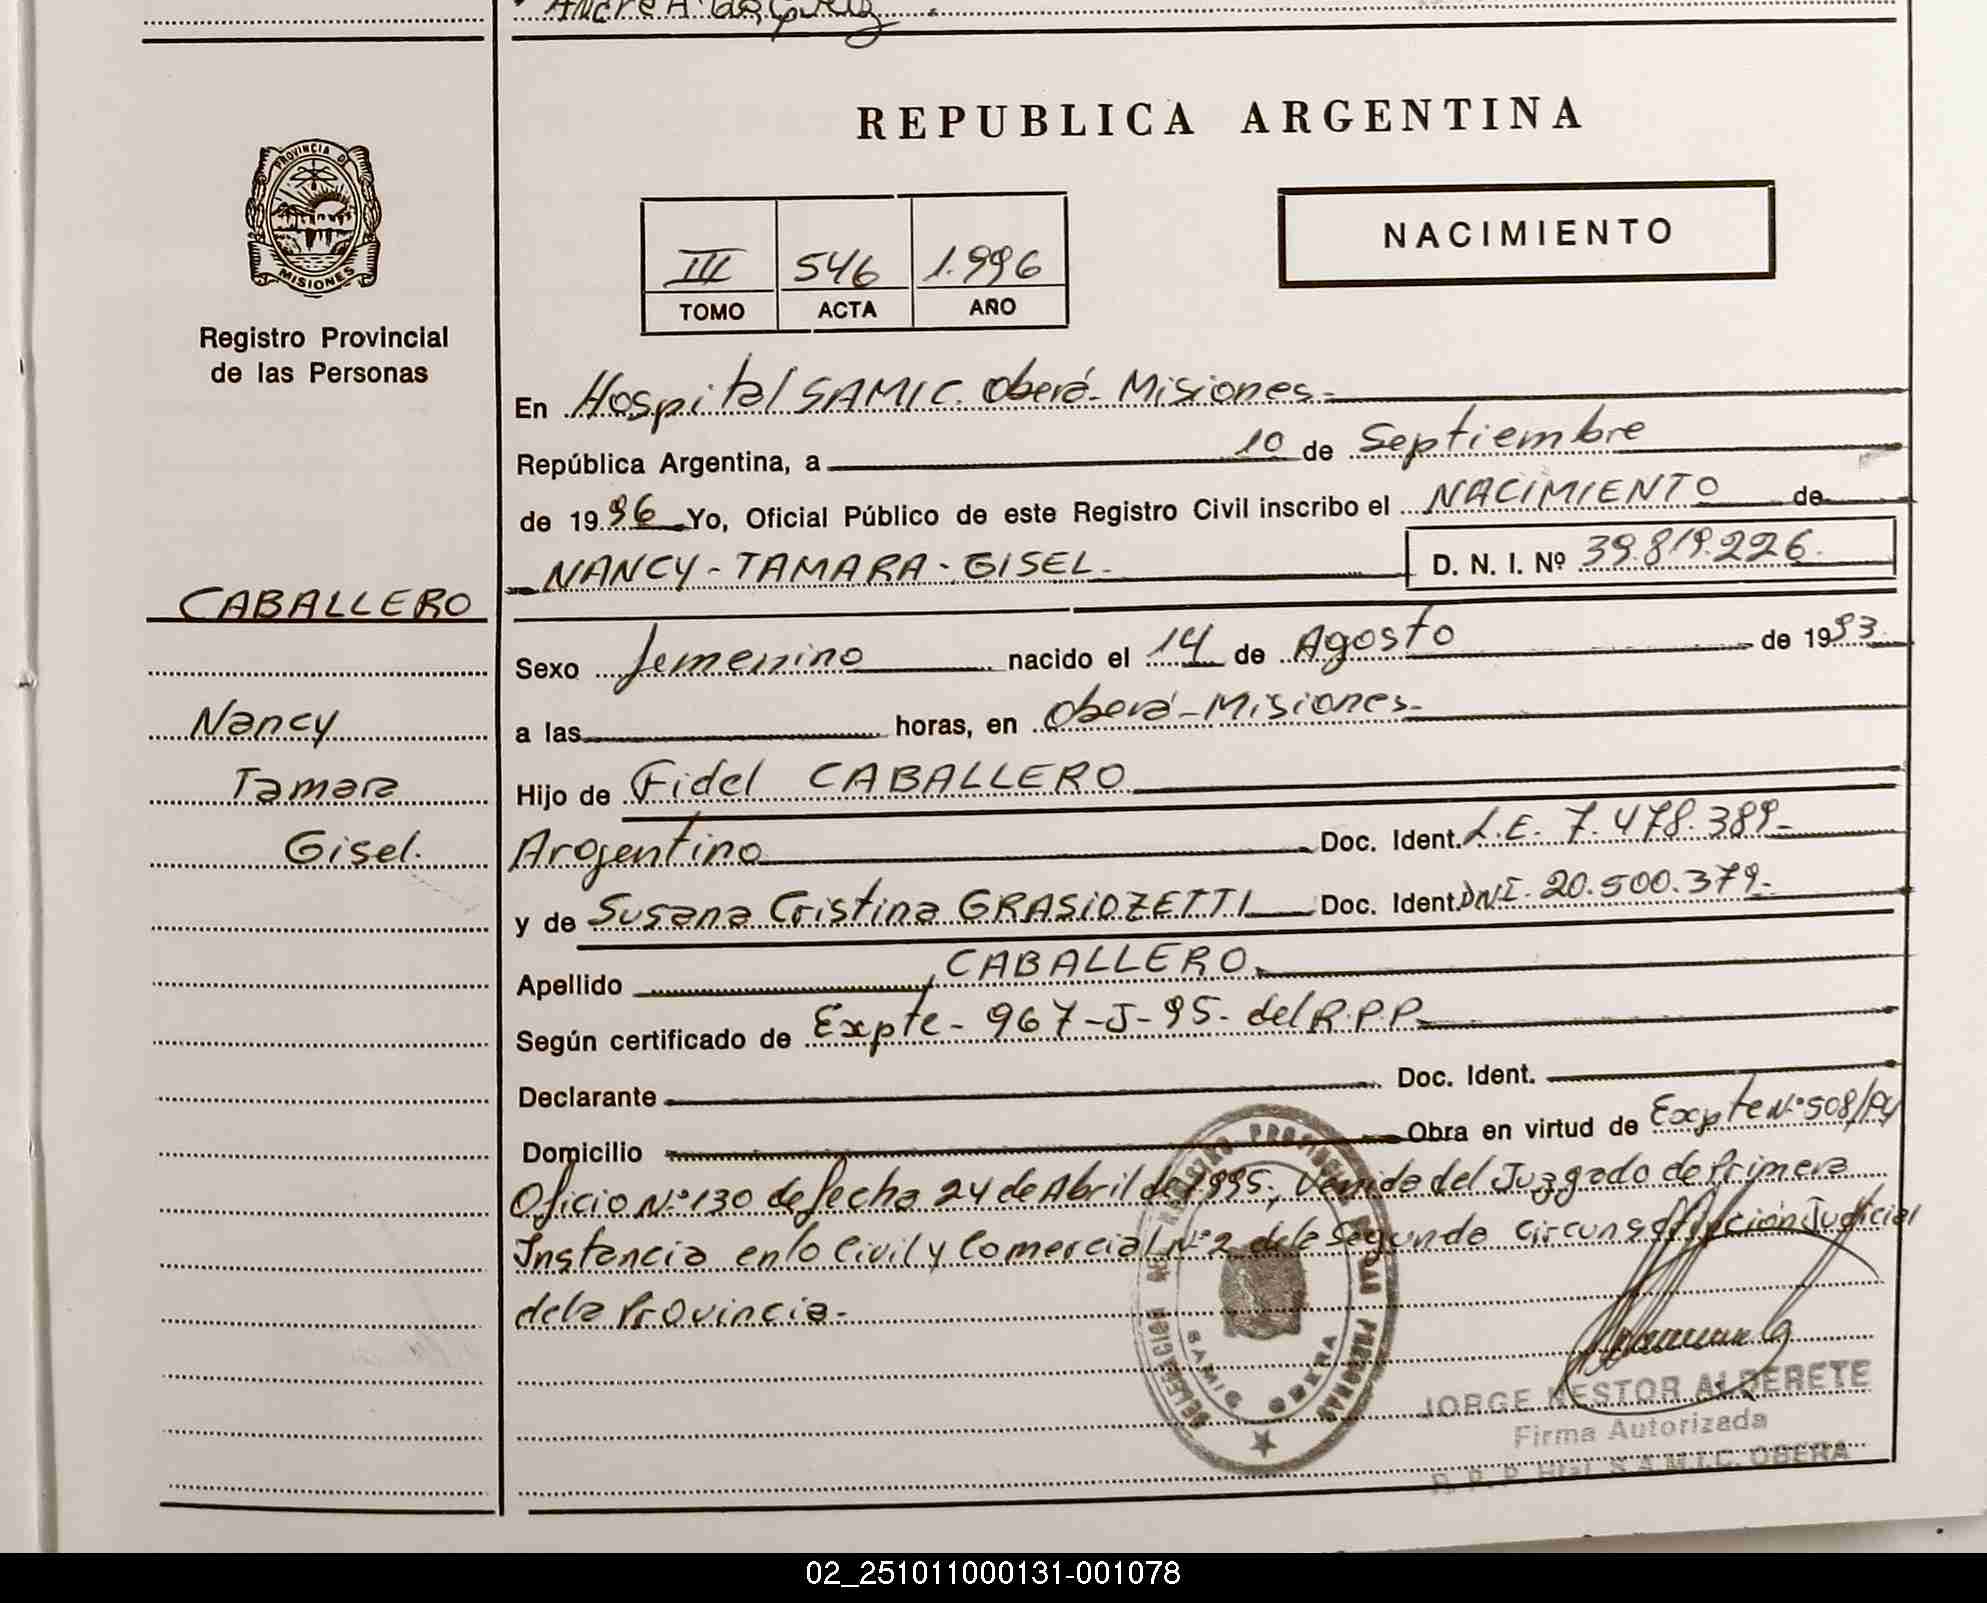 REPUBLICA ARGENTINA
PROVINCIA DE
MISIONES
Registro Provincial
de las Personas
III 546 1.996
TOMO ACTA AÑO
NACIMIENTO
En Hospital SAMIC. Oberá - Misiones.-
República Argentina, a 10 de Septiembre
de 1996 Yo, Oficial Público de este Registro Civil inscribo el NACIMIENTO de
NANCY - TAMARA - GISEL.- D. N. I. Nº 39.819.226.
CABALLERO
Nancy
Tamara
Gisel.
Sexo femenino nacido el 14 de Agosto de 1993.
a las horas, en Oberá - Misiones.-
Hijo de Fidel CABALLERO
Argentino Doc. Ident. L.E. 7.478.389.-
y de Susana Cristina GRASIOZETTI Doc. Ident. DNI. 20.500.379.-
Apellido CABALLERO.
Según certificado de Expte - 967 - J - 95 - del R.P.P.
Declarante Doc. Ident.
Domicilio Obra en virtud de Expte Nº 508/94
Oficio Nº 130 de fecha 24 de Abril de 1995, Venido del Juzgado de Primera
Instancia en lo Civil y Comercial Nº 2 de la Segunda Circunscripción Judicial
de la Provincia.-
DELEGACION REGISTRO PROVINCIAL DE LAS PERSONAS
SAMIC OBERA
JORGE NESTOR ALDERETE
Firma Autorizada
R. P. P. Htal. S.A.M.I.C. OBERA
02_251011000131-001078